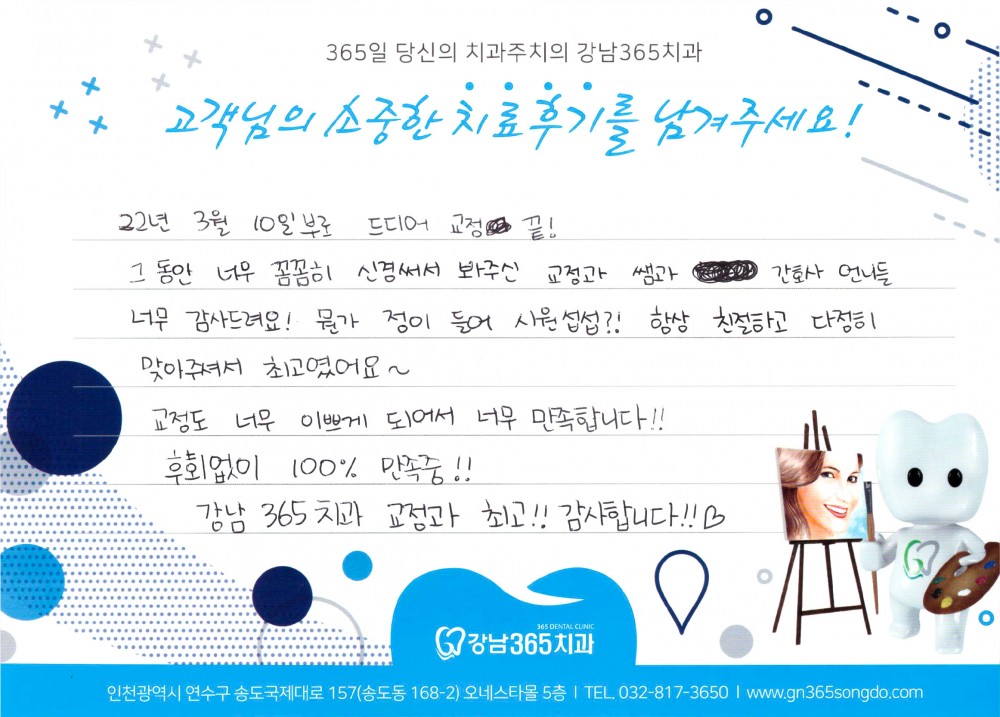 365일 당신의 치과주치의 강남365치과
고객님의 소중한 치료후기를 남겨주세요!
22년 3월 10일부로 드디어 교정 끝!
그동안 너무 꼼꼼히 신경써서 봐주신 교정과 쌤과 간호사 언니들
너무 감사드려요! 뭔가 정이 들어 시원섭섭?! 항상 친절하고 다정히
맞아주셔서 최고였어요~
교정도 너무 이쁘게 되어서 너무 만족합니다!!
후회없이 100% 만족중!!
강남 365치과 교정과 최고!! 감사합니다!!♡
365 DENTAL CLINIC
강남365치과
인천광역시 연수구 송도국제대로 157(송도동 168-2) 오네스타몰 5층 | TEL. 032-817-3650 | www.gn365songdo.com